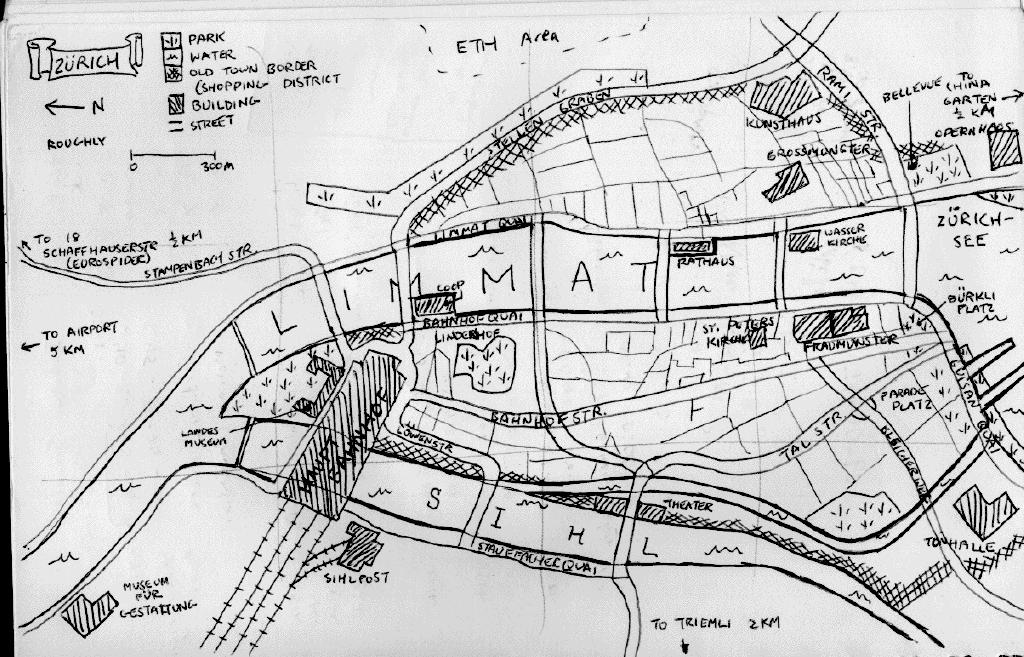 ZÜRICH
PARK
WATER
OLD TOWN BORDER
(SHOPPING DISTRICT
BUILDING
STREET
N
ROUGHLY
0 300M
ETH Area
SEILLERGRABEN
RAMI STR.
KUNSTHAUS
GROSSMÜNSTER
BELLEVUE
TO
CHINA
GARTEN
½ KM
OPERNHAUS
TO 18
SCHAFFHAUSERSTR ½ KM
(EUROSPIDER)
STAMPENBACH STR.
LIMMAT QUAI
LIMMAT
COOP
RATHAUS
WASSER
KIRCHE
ZÜRICH-
SEE
BÜRKLI
PLATZ
TO AIRPORT
5 KM
BAHNHOFQUAI
LINDENHOF
ST. PETERS
KIRCHE
FRAUMÜNSTER
LANDES
MUSEUM
HAUPT
BAHNHOF
BAHNHOFSTR.
F
LÖWENSTR.
TALSTR
PARADE
PLATZ
BLEICHERWEG
SIHL
THEATER
TONHALLE
STAUFFACHERQUAI
SIHLPOST
MUSEUM
FÜR
GESTALTUNG
TO TRIEMLI 2KM